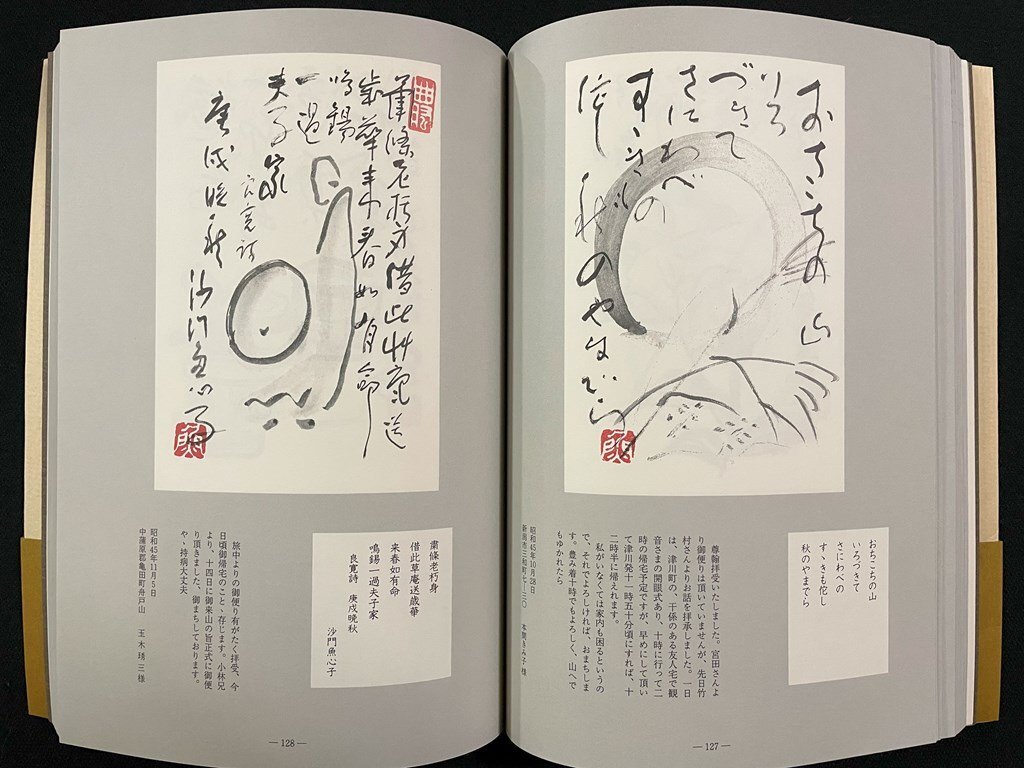 おちこちの山
いろづきて
さにわべの
すゝきも佗し
秋のやまでら
尊翰拝受いたしました。宮田さんよ
り御便りは頂いていませんが、先日竹
村さんよりお話を拝承しました。一日
は、津川町の、干係のある友人宅で観
音さまの開眼式あり、十時に行って二
時の帰宅予定ですが、早めにして頂い
て津川発十一時五十分頃にすれば、十
二時半に帰えれます。
私がいなくては家内も困るというの
で、それでよろしければ、おまちしま
す。豊み着十時でもよろしく、山へで
もゆかれたら
昭和45年10月28日
新潟市三和町七ー三〇　本間きみ子様
— 127 —
肅條老朽身
借此草庵送歳華
来春如有命
鳴錫一過夫子家
良寛詩　庚戌晩秋
沙門魚心子
旅中よりの御便り有がたく拝受、今
日頃御帰宅のことゝ存じます。小林兄
より、十四日に御来山の旨正式に御便
り頂きました、御まちしております。
や、持病大丈夫
昭和45年11月5日
中蒲原郡亀田町舟戸山　玉木琇三様
— 128 —